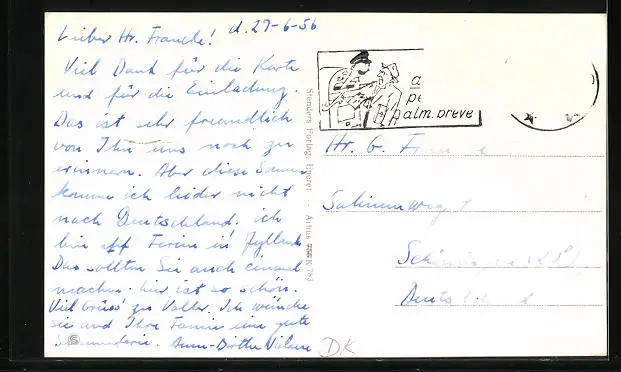 d. 27-6-56
Lieber Hr. Francke!
Viel Dank für die Karte
und für die Einladung.
Das ist sehr freundlich
von Ihn uns noch zu
erinnern. Aber diese Sommer
komme ich leider nicht
nach Deutschland. ich
bin auf Ferien in Jylland
Das sollten Sie auch einmal
machen. hier ist es so schön.
Viel Grüss zu Vater. Ich wünsche
sie und Ihre Familie eine gute
Sommerferie. Ann-Dorthe Nielsen
Stenders Forlag, Eneret - Århus K 783
a
pe
palm.breve
Hr. G. Fran
Salinenweg 7
Sch
Deutschland
DK